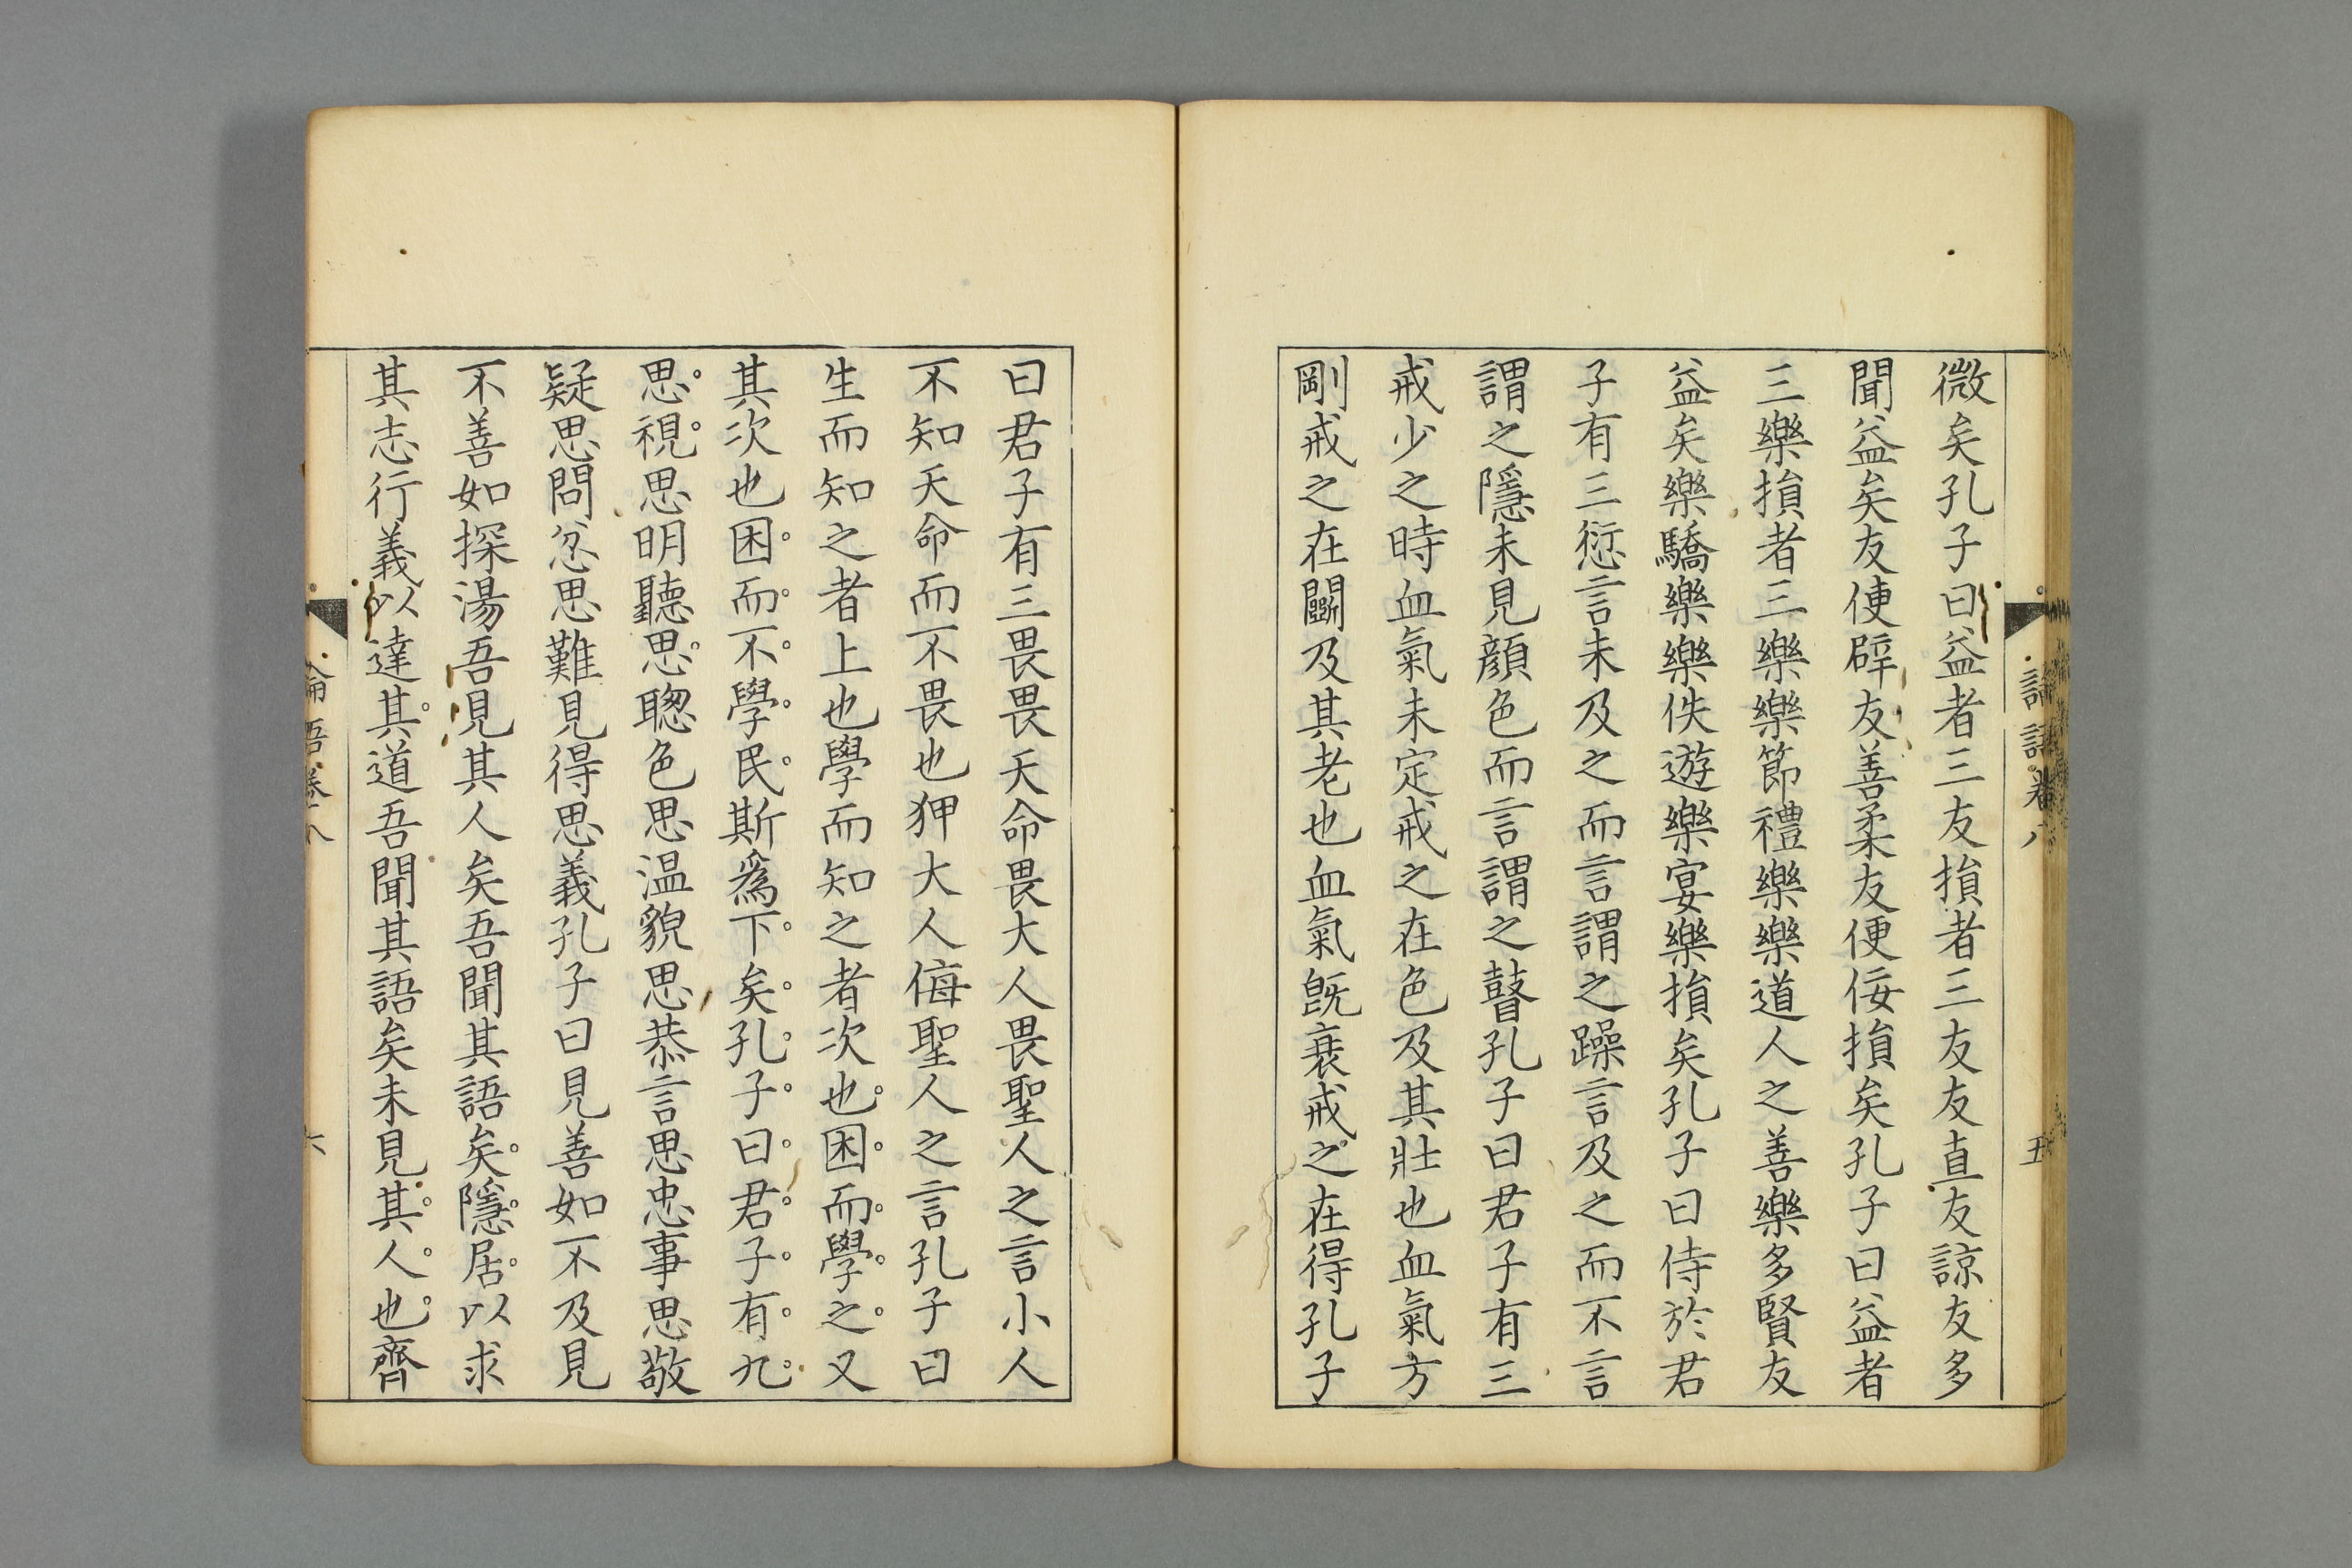 微矣孔子曰益者三友損者三友友直友諒友多
聞益矣友便辟友善柔友便佞損矣孔子曰益者
三樂損者三樂樂節禮樂樂道人之善樂多賢友
益矣樂驕樂樂佚遊樂宴樂損矣孔子曰侍於君
子有三愆言未及之而言謂之躁言及之而不言
謂之隱未見顔色而言謂之瞽孔子曰君子有三
戒少之時血氣未定戒之在色及其壯也血氣方
剛戒之在鬭及其老也血氣既衰戒之在得孔子
論語卷八
五
曰君子有三畏畏天命畏大人畏聖人之言小人
不知天命而不畏也狎大人侮聖人之言孔子曰
生而知之者上也學而知之者次也。困。而。學。之。又
其次也困。而。不。學。民。斯爲下。矣。孔。子。曰。君。子。有。九。
思。視。思明聽思。聰色思温貌思恭言思忠事思敬
疑思問忿思難見得思義孔子曰見善如不及見
不善如探湯吾見其人矣吾聞其語矣。隱。居。以求
其志行義以達其。道吾聞其語矣未見其。人。也。齊
論語卷八
六